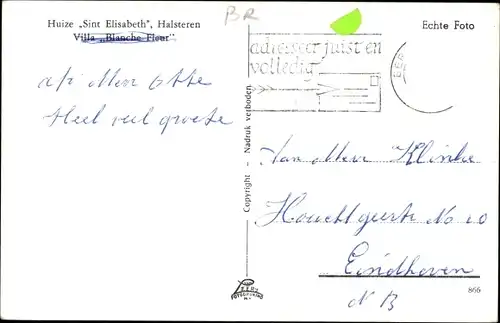 BR
Huize „Sint Elisabeth", Halsteren
Villa „Blanche Fleur"
Echte Foto
adresseer juist en
volledig
a/z Mevr Otte
Heel veel groete
Copyright - Nadruk verboden
Aan Mevr Klinke
No 10
Eindhoven
N B
866